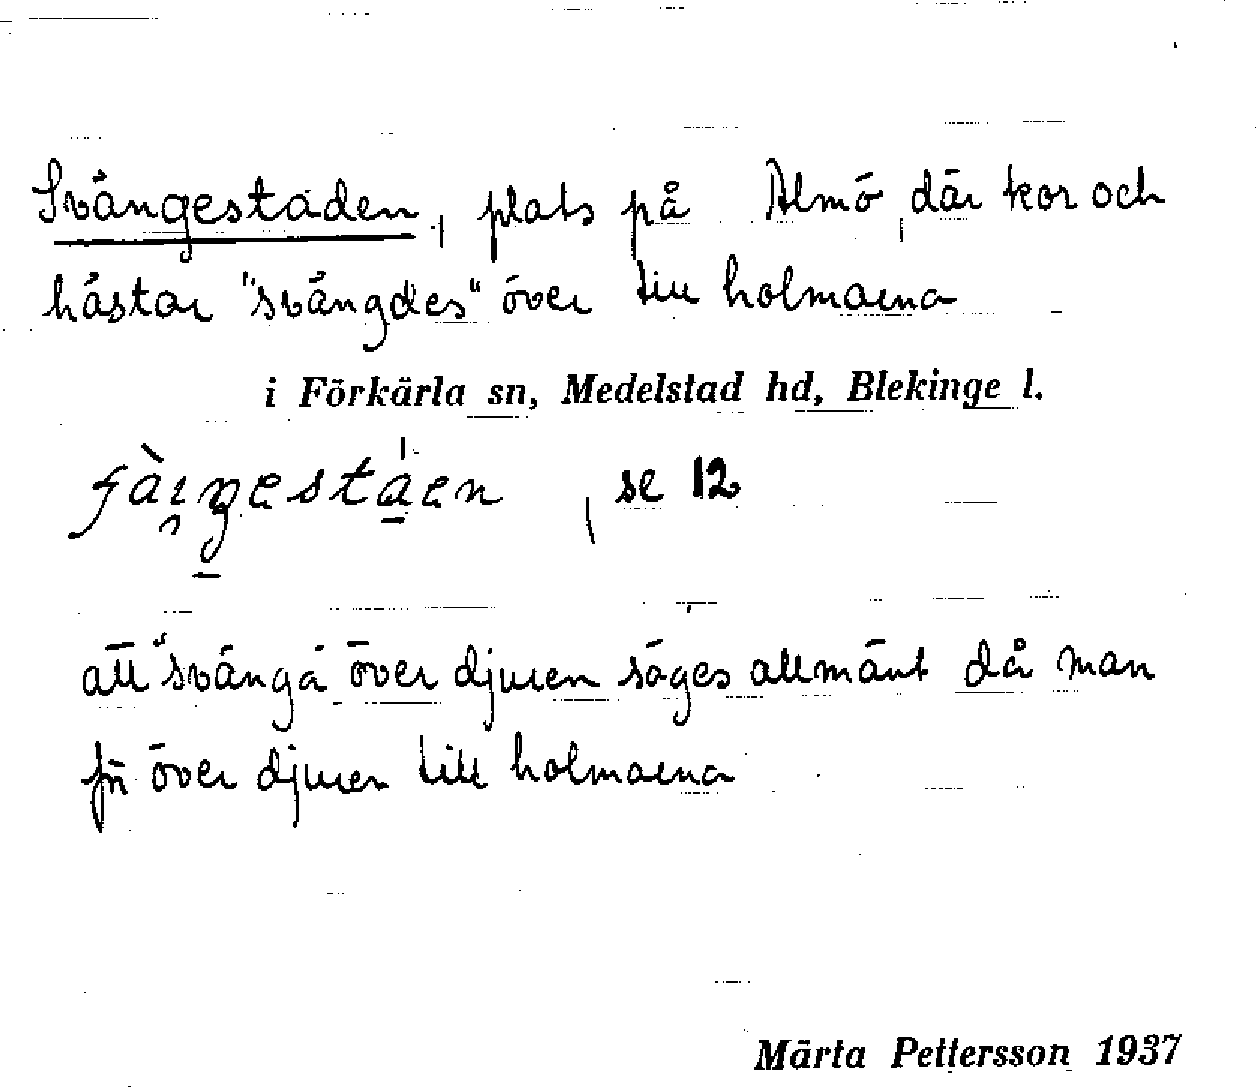 Svängestaden, plats på Almö, där kor och
hästar "svängdes" över till holmarna
i Förkärla sn, Medelstad hd, Blekinge l.
, se 12
att "svänga" över djuren säges allmänt då man
för över djuren till holmarna
Märta Pettersson 1937